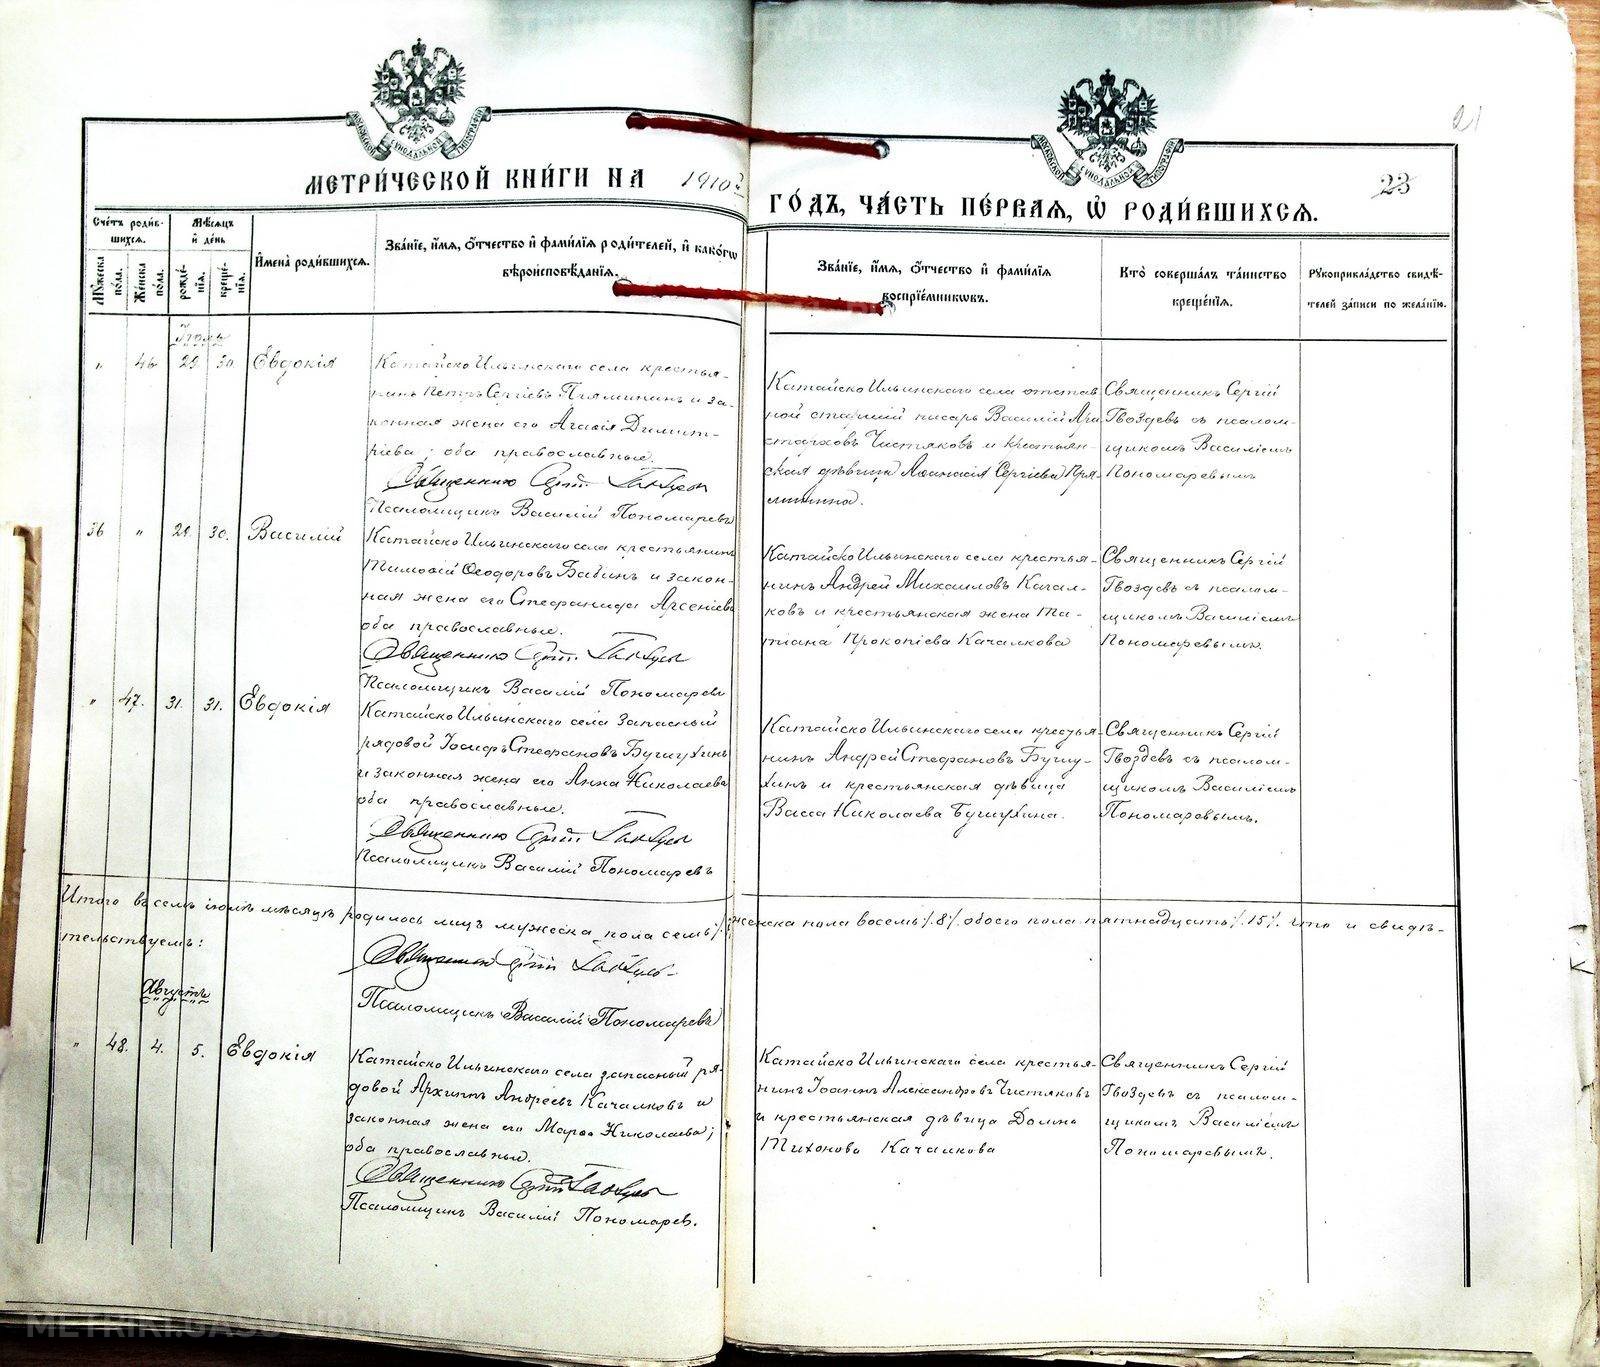 21
23
МЕТРИ́ЧЕСКОЙ КНИ́ГИ НА 1910й
ГО́ДЪ, ЧА́СТЬ ПЕ́РВАЯ, Ѡ РОДИ́ВШИХСЯ.
Сче́тъ роди́в-
шихся.
Мѣ́сяцъ
и де́нь
Му́жеска по́ла.
Же́нска по́ла.
рожде́-
нія.
креще́-
нія.
Имена̀ роди́вшихся.
Зва́нїе, и́мя, ѻ́тчество и фами́лїя роди́телей, и како́гѡ
вѣроисповѣ́данїя.
Зва́нїе, и́мя, ѻ́тчество и фами́лїя
воспрїе́мниковъ.
Кто̀ соверша́лъ та́инство
креще́нїя.
Рукоприкла́дство свидѣ́-
телей за́писи по жела́нїю.
Іюль
" 46 29. 30. Евдокія
Катайско Ильинскаго села крестья-
нинъ Петръ Сергіевъ Прямининъ и за-
конная жена его Агаѳія Димит-
ріева; оба православные.
Священникъ Сергій Гвоздевъ
Псаломщикъ Василій Пономаревъ
Катайско Ильинскаго села отстав
ной старшій писарь Василій
Чистяковъ и крестьян-
ская дѣвица Аѳанасія Сергіева Пря-
минина.
Священникъ Сергій
Гвоздевъ съ псалом-
щикомъ Василіемъ
Пономаревымъ
36 " 29. 30. Василій
Катайско Ильинскаго села крестьянинъ
Тимоѳій Ѳеодоровъ Бабинъ и закон-
ная жена его Стефанида Арсеніева
оба православные.
Священникъ Сергій Гвоздевъ
Псаломщикъ Василій Пономаревъ
Катайско Ильинскаго села крестья-
нинъ Андрей Михаиловъ Качал-
ковъ и крестьянская жена Та-
тіана Прокопіева Качалкова
Священникъ Сергій
Гвоздевъ съ псалом-
щикомъ Василіемъ
Пономаревымъ.
" 47. 31. 31. Евдокія
Катайско Ильинскаго села запасный
рядовой Іосифъ Стефановъ Бушухинъ
и законная жена его Анна Николаева
оба православные.
Священникъ Сергій Гвоздевъ
Псаломщикъ Василій Пономаревъ
Катайско Ильинскаго села крестья-
нинъ Андрей Стефановъ Бушу-
хинъ и крестьянская дѣвица
Васса Николаева Бушухина.
Священникъ Сергій
Гвоздевъ съ псалом-
щикомъ Василіемъ
Пономаревымъ.
Итого въ семъ іюлѣ мѣсяцѣ родилось лицъ мужеска пола семь женска пола восемь ·/.8·/. обоего пола пятнадцать ·/.15·/. что и свидѣ-
тельствуемъ:
Священникъ Сергій Гвоздевъ
Псаломщикъ Василій Пономаревъ
Августъ
" 48. 4. 5. Евдокія
Катайско Ильинскаго села запасный ря-
довой Архиппъ Андреевъ Качалковъ и
законная жена его Марѳа Николаева;
оба православные.
Священникъ Сергій Гвоздевъ
Псаломщикъ Василій Пономарев.
Катайско Ильинскаго села крестья-
нинъ Іоаннъ Александровъ Чистяковъ
и крестьянская дѣвица Домна
Тихонова Качалкова
Священникъ Сергій
Гвоздевъ съ псалом-
щикомъ Василіемъ
Пономаревымъ.
METRIKI.GASO-URAL.RU